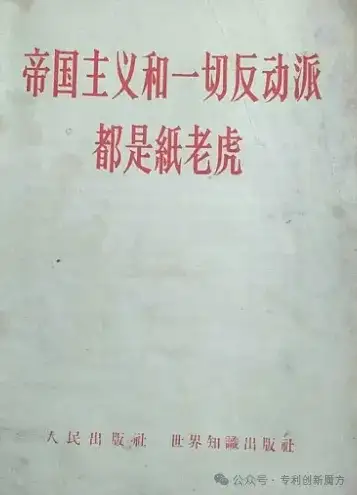 帝国主义和一切反动派
都是紙老虎
人民出版社 世界知識出版社
公众号·专利创新魔方